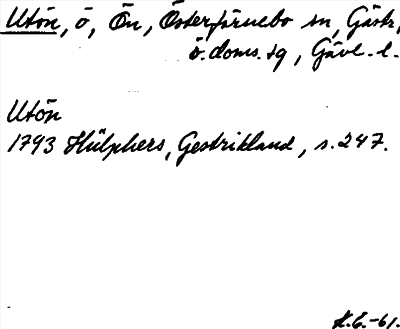 Utön, ö, Ön, Österfärnebo sn, Gästr,
ö. doms. sg, Gävl. l.
Utön
1793 Hülphers, Gestrikland, s. 247.
K.E.-61.